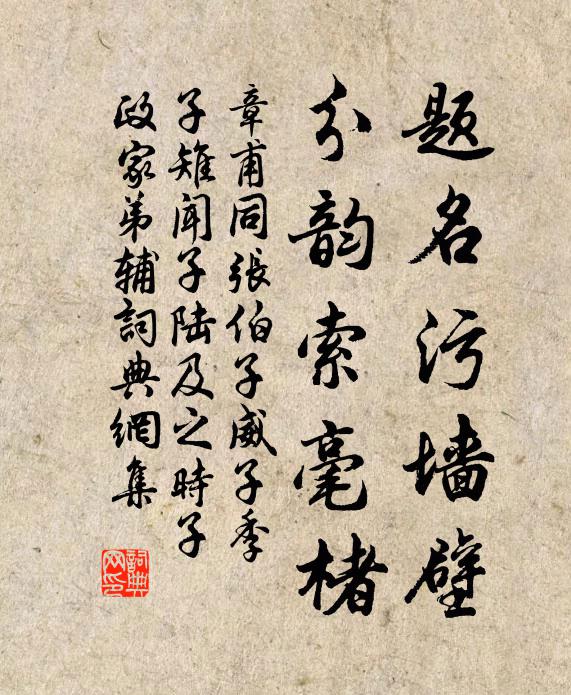 题名污墙壁
分韵索毫楮
章甫同張伯子威子季
子雉闻子陆及之時子
政家弟辅詞典網集
詞典网印